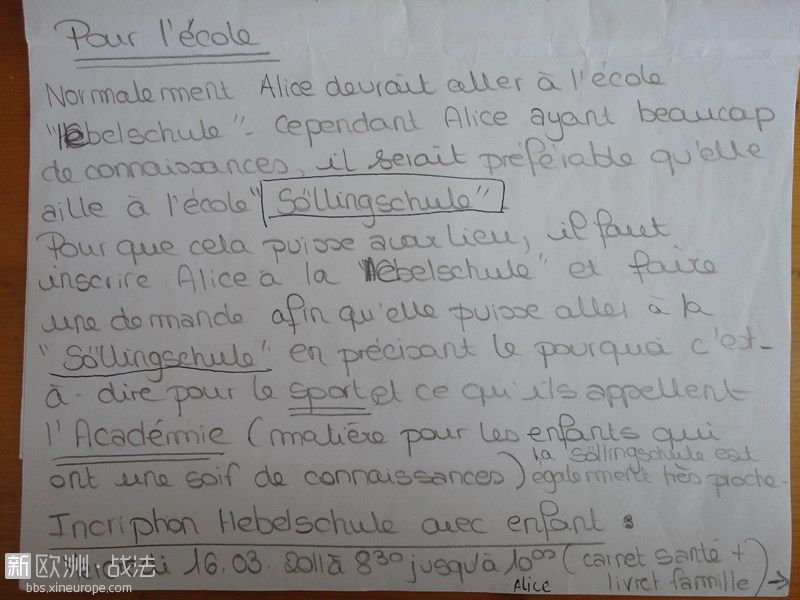 Pour l'école
Normalement Alice devrait aller à l'école
"Hebelschule". Cependant Alice ayant beaucap
de connaissances, il serait préférable qu'elle
aille à l'école "Söllingschule"
Pour que cela puisse avoir lieu, il faut
inscrire Alice à la "Hebelschule" et faire
une demande afin qu'elle puisse aller à la
"Söllingschule" en précisant le pourquoi c'est-
à-dire pour le sport et ce qu'ils appellent
l'Académie (matière pour les enfants qui
ont une soif de connaissances) la Söllingschule est
également très proche.
Incription Hebelschule avec enfant :
Mercredi 16.03.2011 à 8³⁰ jusqu'à 10⁰⁰ (carnet santé +
Alice livret famille) →
新欧洲·战法
bbs.xineurope.com